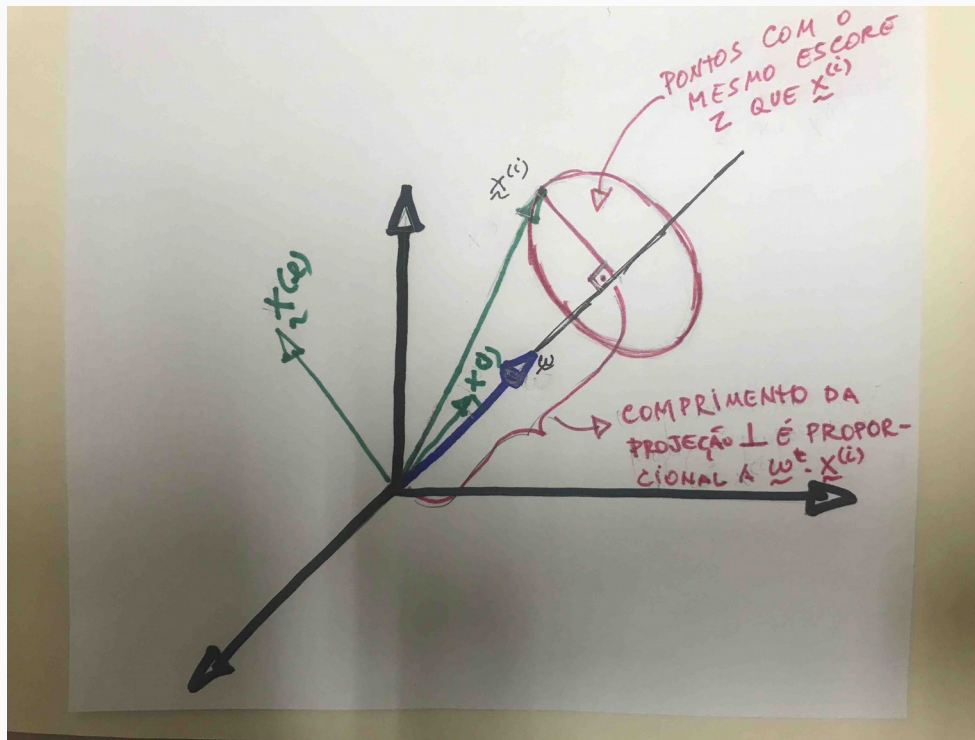 PONTOS COM O
MESMO ESCORE
Z QUE x^(i)
x^(i)
w
COMPRIMENTO DA
PROJEÇÃO ⊥ É PROPOR-
CIONAL A w^t. x^(i)